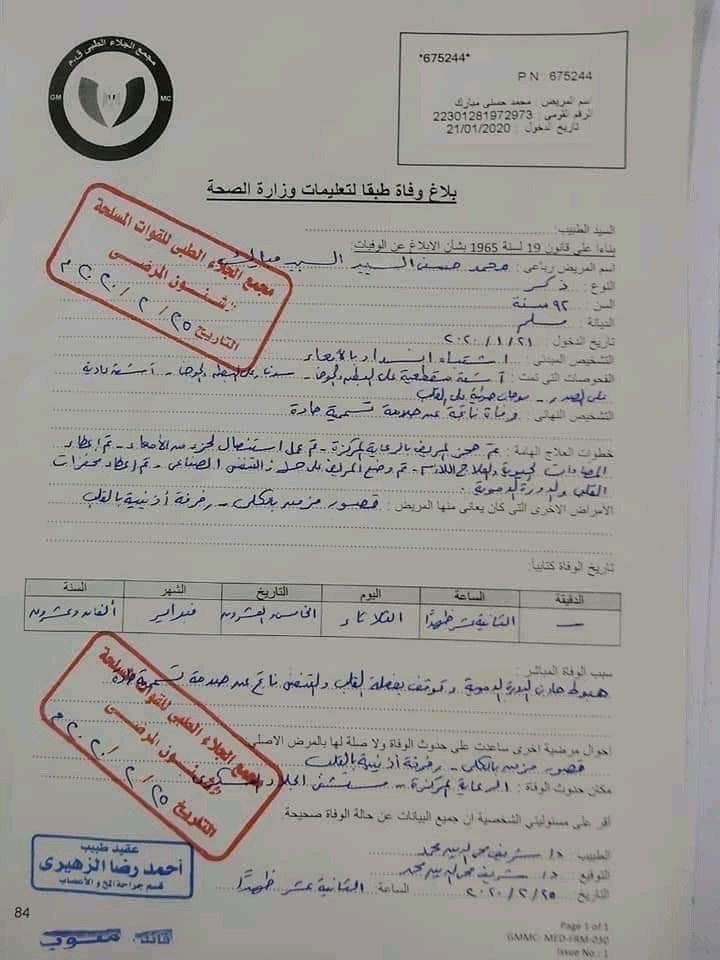 مجمع الجلاء الطبى ق.م
GM MC
*675244*
PN : 675244
اسم المريض محمد حسنى مبارك
الرقم القومى 22301281972973
تاريخ الدخول 21/01/2020
بلاغ وفاة طبقا لتعليمات وزارة الصحة
السيد الطبيب
بناءا على قانون 19 لسنة 1965 بشأن الابلاغ عن الوفيات:
اسم المريض رباعى : محمد حسنى السيد السيد مبارك
النوع : ذكر
السن : ٩٢ سنة
الديانة : مسلم
تاريخ الدخول : ٢٠٢٠/١/٢١
التشخيص المبدئى : اشتباه انسداد بالأمعاء
الفحوصات التى تمت : أشعة مقطعية على البطن والحوض - سونار على البطن والحوض - أشعة عادية
على الصدر - موجات صوتية على القلب
التشخيص النهائى : وفاة ناتجة عن صدمة تسممية حادة
خطوات العلاج الهامة : تم حجز المريض بالرعاية المركزة - تم عمل استئصال لجزء من الأمعاء - تم إعطاء
المضادات الحيوية والعلاج اللازم - تم وضع المريض على جهاز التنفس الصناعى - تم إعطاء محفزات
القلب والدورة الدموية
الأمراض الاخرى التى كان يعانى منها المريض : قصور مزمن بالكلى - رفرفة أذينية بالقلب
تاريخ الوفاة كتابيا:
الدقيقة الساعة اليوم التاريخ الشهر السنة
— الثانية عشر ظهرًا الثلاثاء الخامس والعشرون فبراير ألفان وعشرون
سبب الوفاة المباشر :
هبوط حاد بالدورة الدموية وتوقف بعضلة القلب والتنفس ناتج عن صدمة تسممية حادة
احوال مرضية اخرى ساعدت على حدوث الوفاة ولا صلة لها بالمرض الاصلى :
قصور مزمن بالكلى - رفرفة أذينية بالقلب
مكان حدوث الوفاة : الرعاية المركزة - مستشفى الجلاء العسكرى
أقر على مسئوليتي الشخصية ان جميع البيانات عن حالة الوفاة صحيحة:
الطبيب : د/ شريف محى الدين محمد
التوقيع : د/ شريف محى الدين محمد
التاريخ : ٢٠٢٠/٢/٢٥ الساعة : الثانية عشر ظهرًا
مجمع الجلاء الطبى للقوات المسلحة
شئون المرضى
التاريخ ٢٥ / ٢ / ٢٠٢٠ م
مجمع الجلاء الطبى للقوات المسلحة
شئون المرضى
التاريخ ٢٥ / ٢ / ٢٠٢٠ م
عقيد طبيب
أحمد رضا الزهيرى
قسم جراحة المخ والأعصاب
84
Page 1 of 1
GMMC- MED-FRM-030
Issue No.: 1